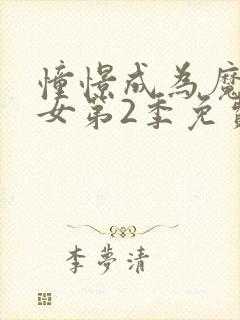 憧憬成為魔
女第2季免費
李夢清